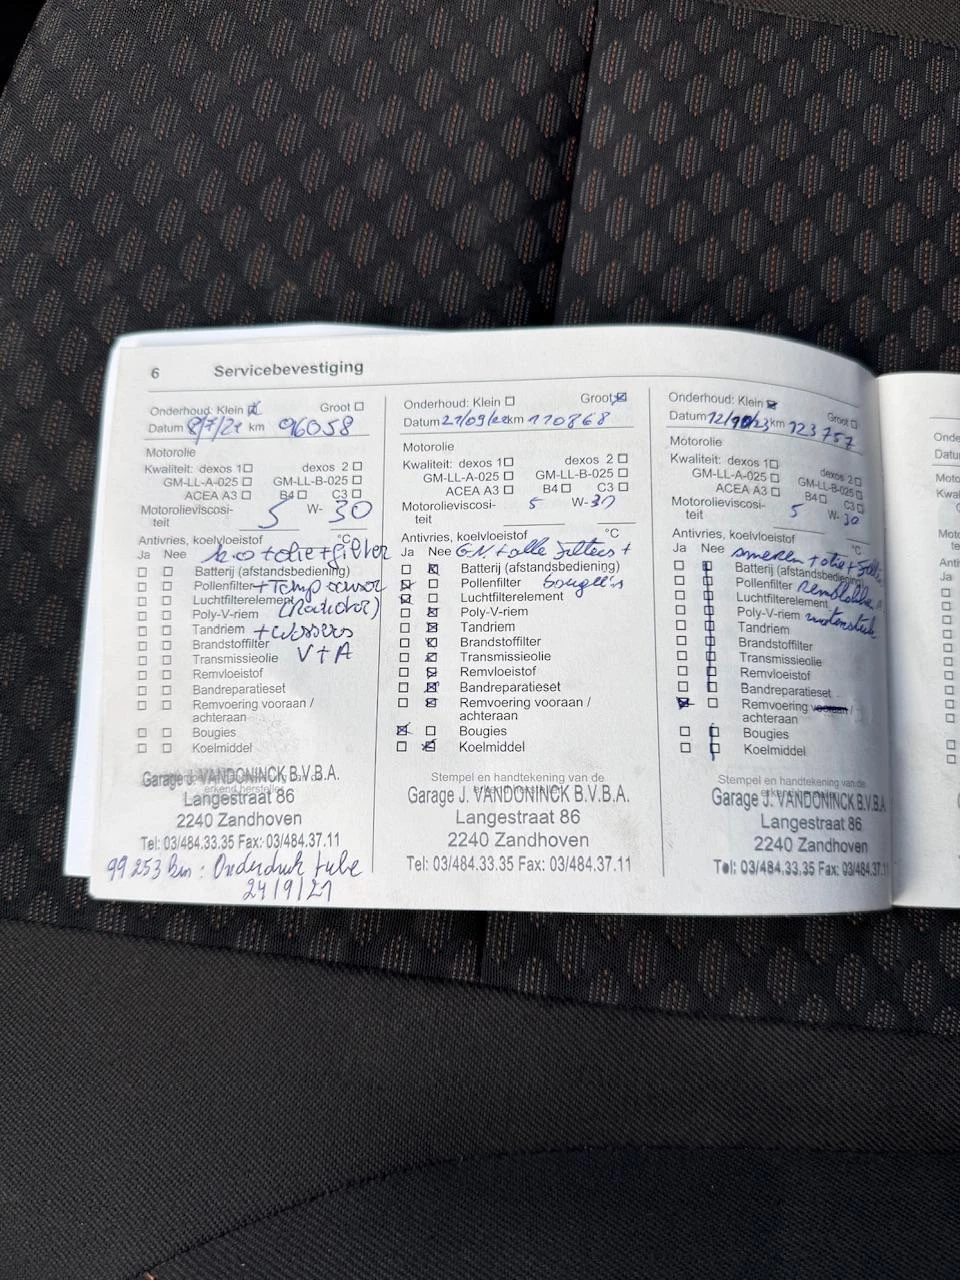 6 Servicebevestiging
Onderhoud: Klein Groot
Datum 8/7/21 km 96058
Motorolie
Kwaliteit: dexos 1 dexos 2
GM-LL-A-025 GM-LL-B-025
ACEA A3 B4 C3
Motorolieviscosi-
teit 5 W- 30
Antivries, koelvloeistof °C
Ja Nee + olie + filter
Batterij (afstandsbediening)
Pollenfilter + Temp sensor
Luchtfilterelement (Radiator)
Poly-V-riem
Tandriem + wissers
Brandstoffilter V+A
Transmissieolie
Remvloeistof
Bandreparatieset
Remvoering vooraan /
achteraan
Bougies
Koelmiddel
erkend hersteller
Garage J. VANDONINCK B.V.B.A.
Langestraat 86
2240 Zandhoven
Tel: 03/484.33.35 Fax: 03/484.37.11
99 253 km : Onderdruk tube
24/9/21
Onderhoud: Klein Groot
Datum 21/09/22 km 110868
Motorolie
Kwaliteit: dexos 1 dexos 2
GM-LL-A-025 GM-LL-B-025
ACEA A3 B4 C3
Motorolieviscosi-
teit 5 W- 30
Antivries, koelvloeistof °C
Ja Nee GN + alle filters +
Batterij (afstandsbediening)
Pollenfilter bougie's
Luchtfilterelement
Poly-V-riem
Tandriem
Brandstoffilter
Transmissieolie
Remvloeistof
Bandreparatieset
Remvoering vooraan /
achteraan
Bougies
Koelmiddel
Stempel en handtekening van de
erkend hersteller
Garage J. VANDONINCK B.V.B.A.
Langestraat 86
2240 Zandhoven
Tel: 03/484.33.35 Fax: 03/484.37.11
Onderhoud: Klein Groot
Datum 12/10/23 km 123757
Motorolie
Kwaliteit: dexos 1 dexos 2
GM-LL-A-025 GM-LL-B-025
ACEA A3 B4 C3
Motorolieviscosi-
teit 5 W- 30
Antivries, koelvloeistof °C
Ja Nee smeren + olie + filter
Batterij (afstandsbediening)
Pollenfilter Remblokken
Luchtfilterelement
Poly-V-riem
Tandriem
Brandstoffilter
Transmissieolie
Remvloeistof
Bandreparatieset
Remvoering vooraan /
achteraan
Bougies
Koelmiddel
Stempel en handtekening van de
erkend hersteller
Garage J. VANDONINCK B.V.B.A
Langestraat 86
2240 Zandhoven
Tel: 03/484.33.35 Fax: 03/484.37.11
Ja